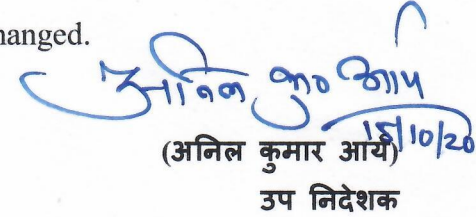 hanged.
अनिल कु० आर्य
15/10/20
(अनिल कुमार आर्य)
उप निदेशक